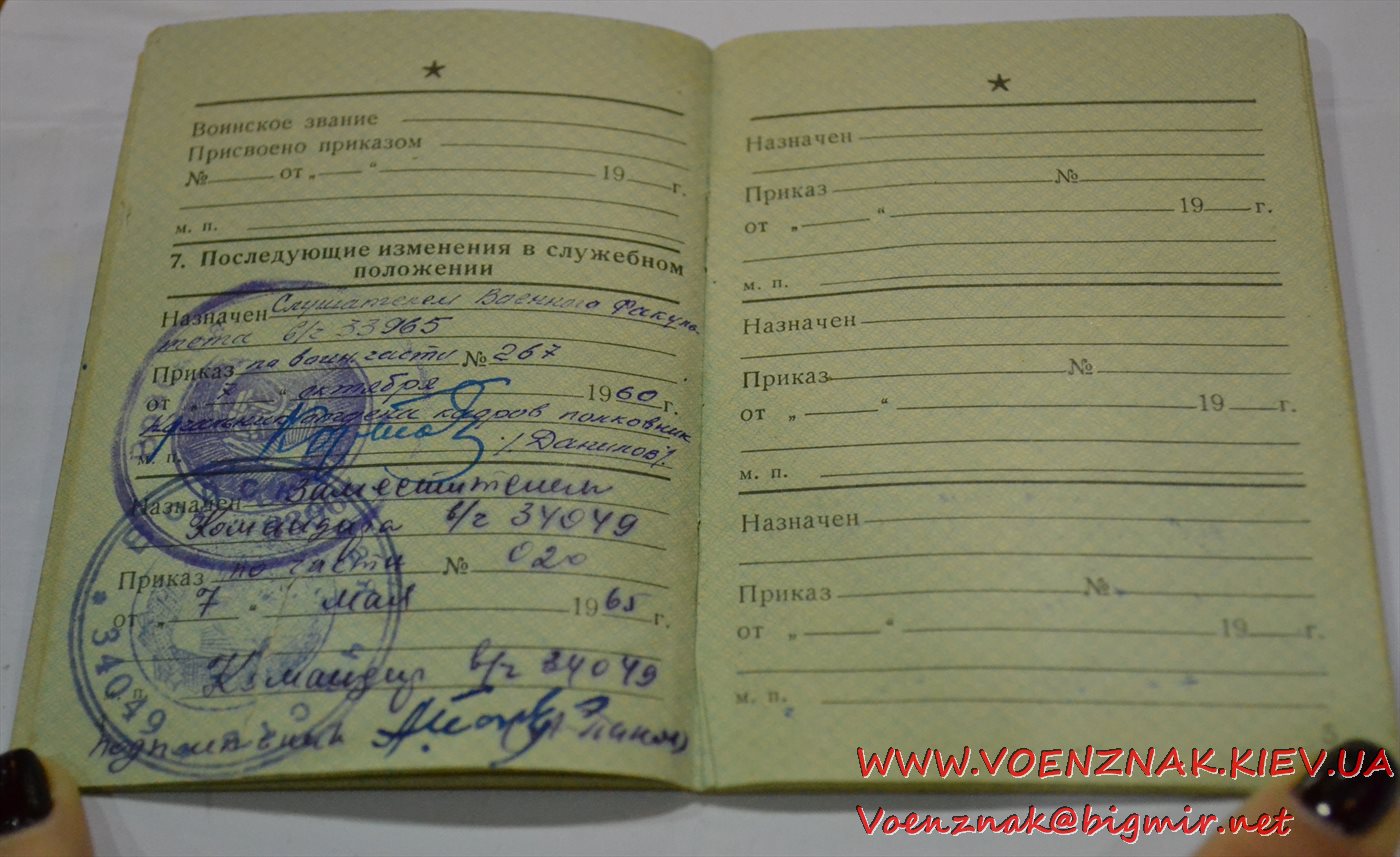 ★
Воинское звание
Присвоено приказом
№ от „ “ 19 г.
м. п.
7. Последующие изменения в служебном
положении
Назначен Слушателем Военного Факуль-
тета в/ч 33965
Приказ по воин. части № 267
от „ 7 “ октября 1960 г.
Начальник отдела кадров полковник
/Данилов/
м. п.
Назначен Заместителем
Командира в/ч 34049
Приказ по части № 020
от „ 7 “ мая 1965 г.
Командир в/ч 34049
подполковник
* 34049
★
Назначен
Приказ №
от „ “ 19 г.
м. п.
Назначен
Приказ №
от „ “ 19 г.
м. п.
Назначен
Приказ №
от „ “ 19 г.
м. п.
WWW.VOENZNAK.KIEV.UA
Voenznak@bigmir.net